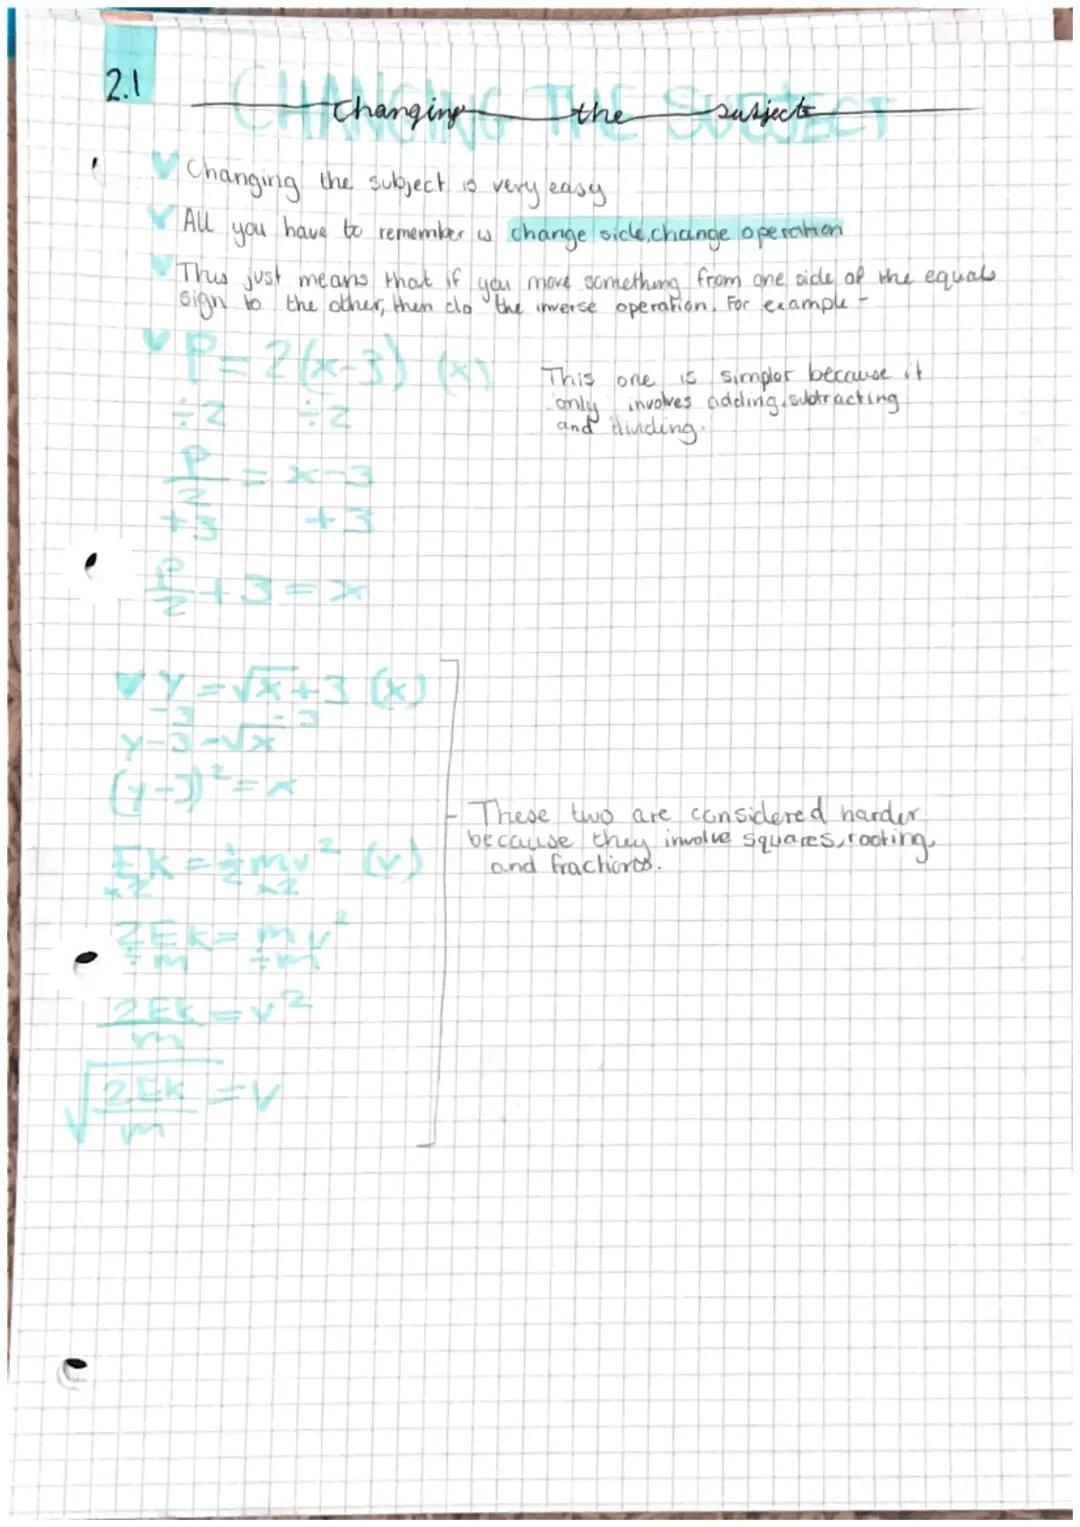 2.1
CHANGING THE SUBJECT
Changing the subject
Changing the subject is very easy
All you have to remember is change side, change operation
This just means that if you move something from one side of the equals
sign to the other, then do the inverse operation. For example -
P = 2(x-3) (x)
÷2 ÷2
This one is simpler because it
only involves adding, subtracting
and dividing.
P/2 = x-3
+3 +3
P/2 + 3 = x
y = √x + 3 (x)
-3 -3
y-3 = √x
(y-3)² = x
These two are considered harder
because they involve squares, rooting,
and fractions.
Ek = ½mv² (v)
×2 ×2
2Ek = mv²
÷m ÷m
2Ek/m = v²
√2Ek/m = v